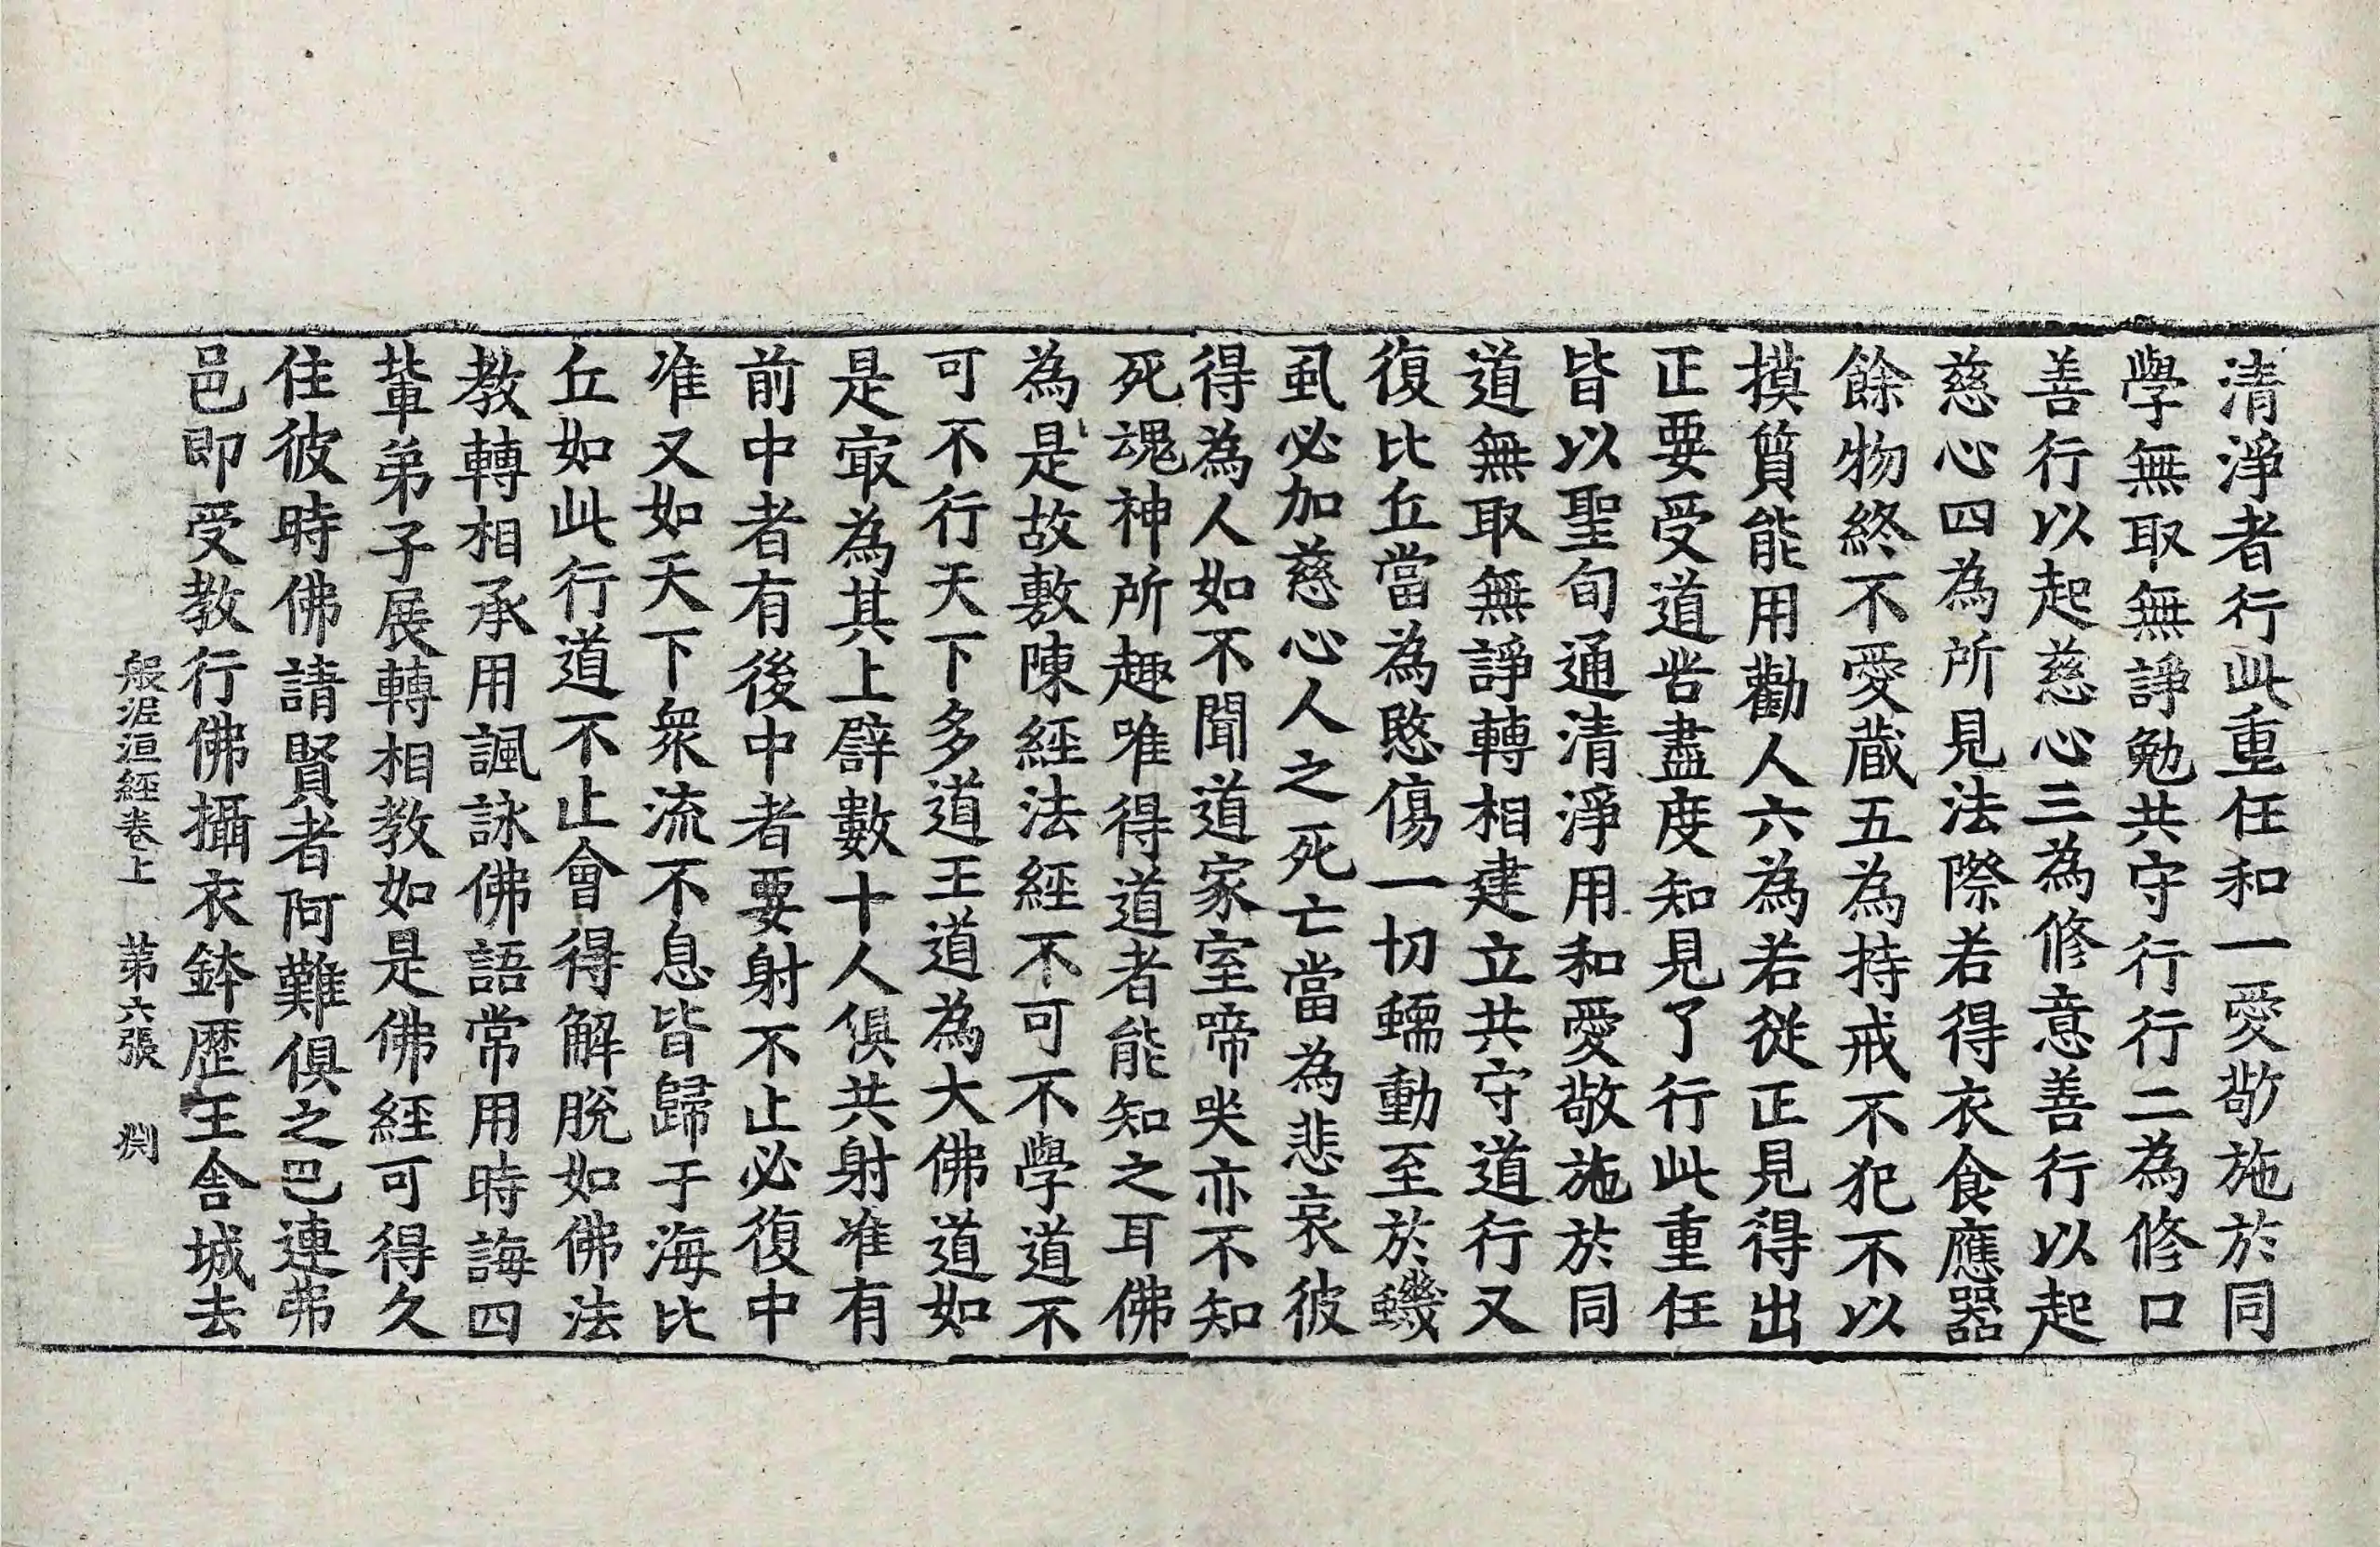 清淨者行此重任和一愛敬施於同
學無取無諍勉共守行行二為修口
善行以起慈心三為修意善行以起
慈心四為所見法際若得衣食應器
餘物終不愛藏五為持戒不犯不以
摸質能用勸人六為若從正見得出
正要受道苦盡度知見了行此重任
皆以聖旬通清淨用和愛敬施於同
道無取無諍轉相建立共守道行又
復比丘當為愍傷一切蠕動至於蟣
虱必加慈心人之死亡當為悲哀彼
得為人如不聞道家室啼哭亦不知
死魂神所趣唯得道者能知之耳佛
為是故敷陳經法經不可不學道不
可不行天下多道王道為大佛道如
是㝡為其上辟數十人俱共射准有
前中者有後中者要射不止必復中
准又如天下衆流不息皆歸于海比
丘如此行道不止會得解脫如佛法
教轉相承用諷詠佛語常用時誨四
輩弟子展轉相教如是佛經可得久
住彼時佛請賢者阿難俱之巴連弗
邑即受教行佛攝衣鉢歷王舍城去
般泥洹經卷上 第六張 渕